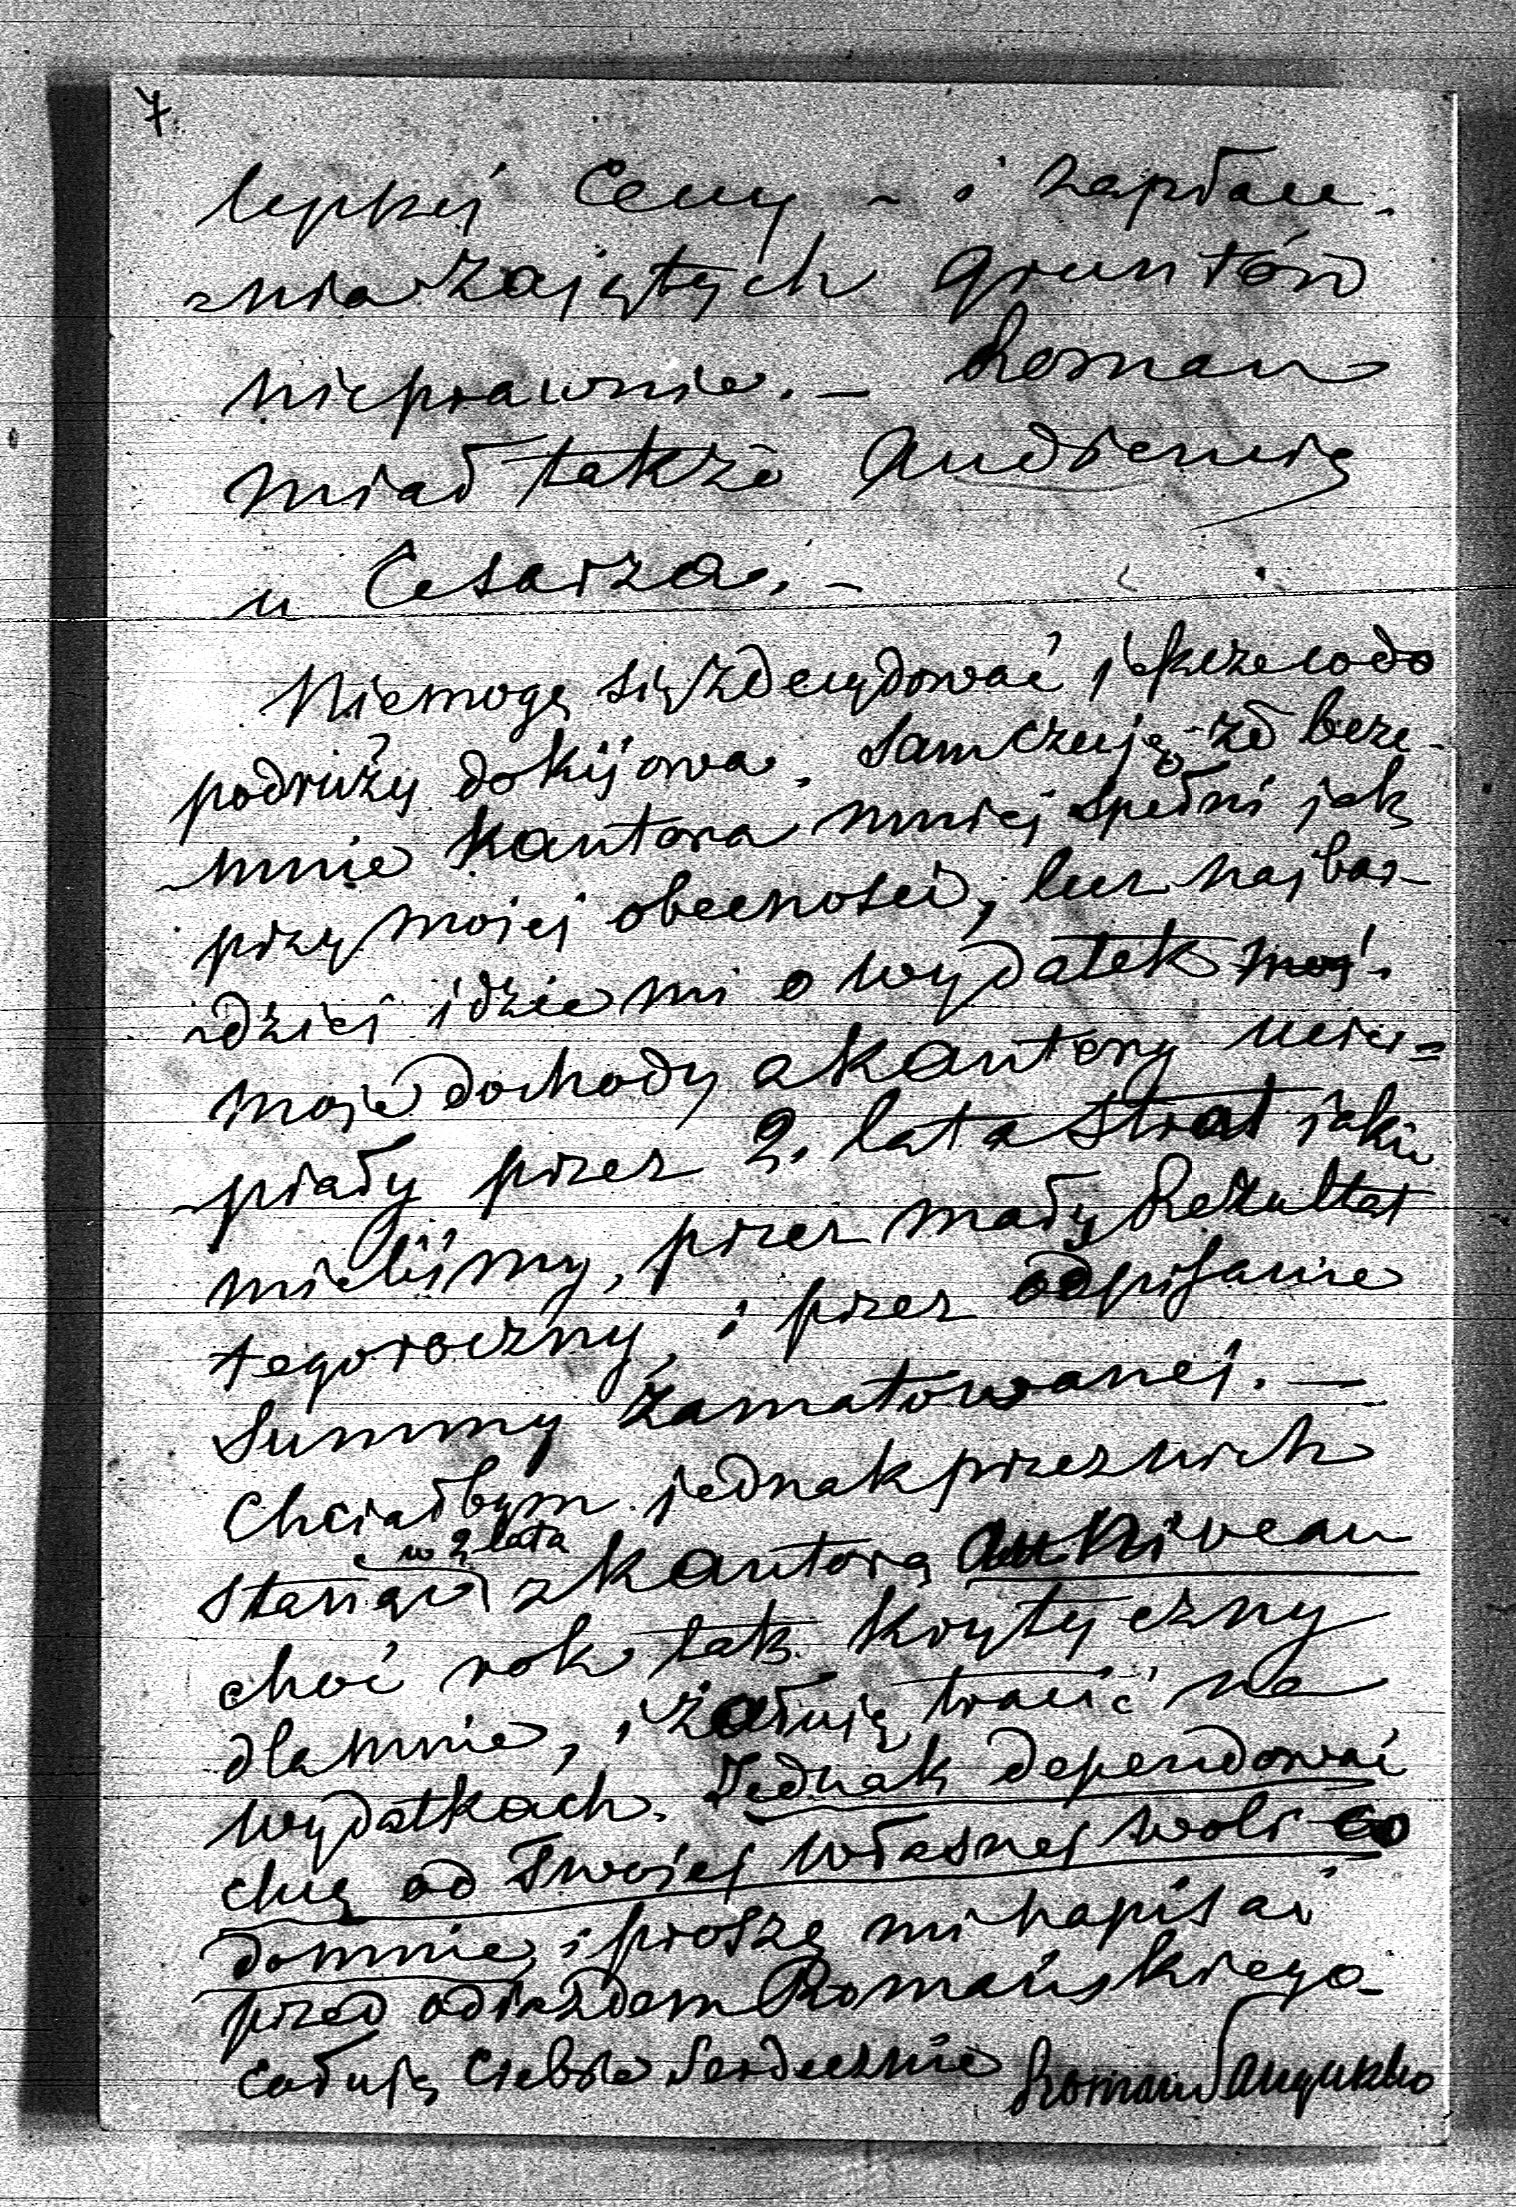 7.
lepszej Ceny - i zapłace-
-nia zajętych gruntów
nieprawnie. - Roman
miał także Audiencię
u Cesarza. -
Niemogę się zdecydować jeszcze co do
podróży do Kijowa. Sam czuję że beze-
-mnie Kantora mniej spełni jak
przy mojej obecności, lecz najbar-
-dziej idzie mi o wydatek
moje dochody a kantory ucier=
-piały przez 2. lata strat jakie
mieliśmy, przez mały Rezultat
tegoroczny, i przez odpisanie
Summy zamatowanej. -
Chciałbym jednak przez nich
w 2 lata
stanąć z kantorą au Niveau
choć rok tak krytyczny
dla mnie, i żałuję tracić na
wydatkach. Jednak dependować
chcę od Twojej własnej woli co
do mnie, i proszę mi napisać
przed odiazdem Romańskiego
Całuję Ciebie Serdecznie Roman Sanguszko